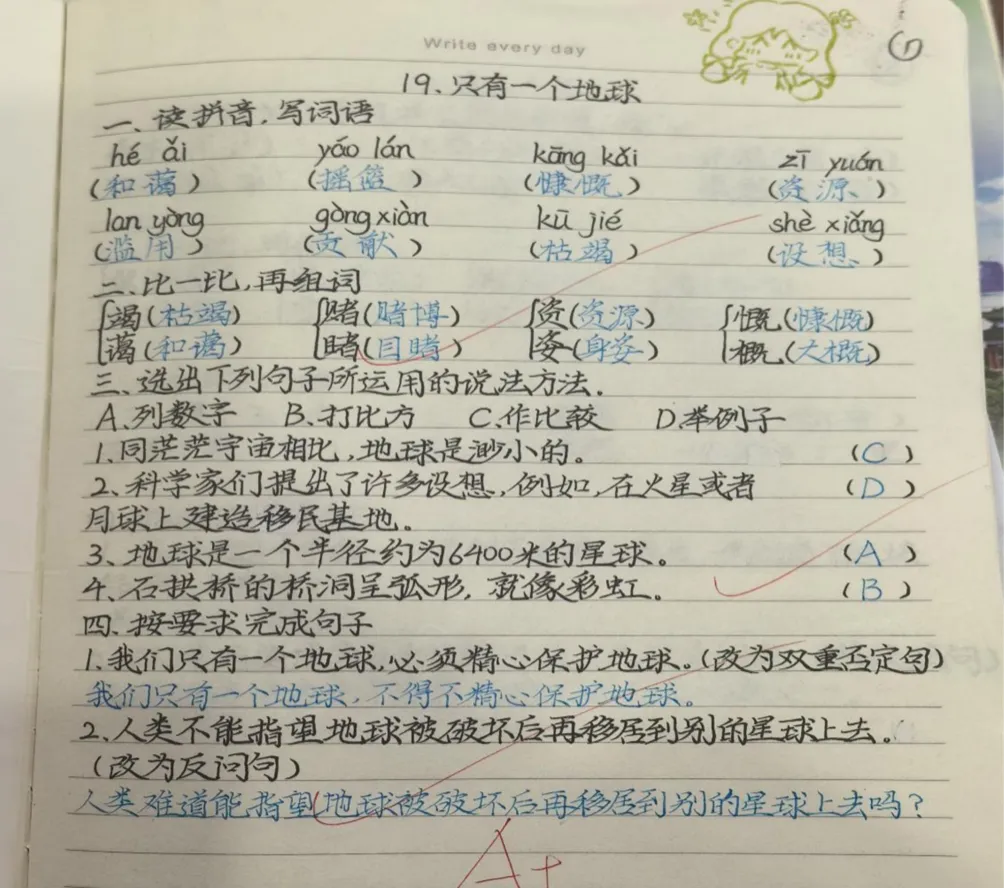 Write every day
19、只有一个地球
一、读拼音，写词语
hé ǎi yáo lán kāng kǎi zī yuán
(和蔼) (摇篮) (慷慨) (资源)
lan yòng gòng xiàn kū jié shè xiǎng
(滥用) (贡献) (枯竭) (设想)
二、比一比，再组词
竭(枯竭) 赌(赌博) 资(资源) 慨(慷慨)
蔼(和蔼) 睹(目睹) 姿(身姿) 概(大概)
三、选出下列句子所运用的说法方法.
A.列数字 B.打比方 C.作比较 D.举例子
1、同茫茫宇宙相比，地球是渺小的。 (C)
2、科学家们提出了许多设想，例如，在火星或者 (D)
月球上建造移民基地。
3、地球是一个半径约为6400米的星球。 (A)
4、石拱桥的桥洞呈弧形，就像彩虹。 (B)
四、按要求完成句子
1、我们只有一个地球，必须精心保护地球。(改为双重否定句)
我们只有一个地球，不得不精心保护地球。
2、人类不能指望地球被破坏后再移居到别的星球上去。
(改为反问句)
人类难道能指望地球被破坏后再移居到别的星球上去吗？
A+